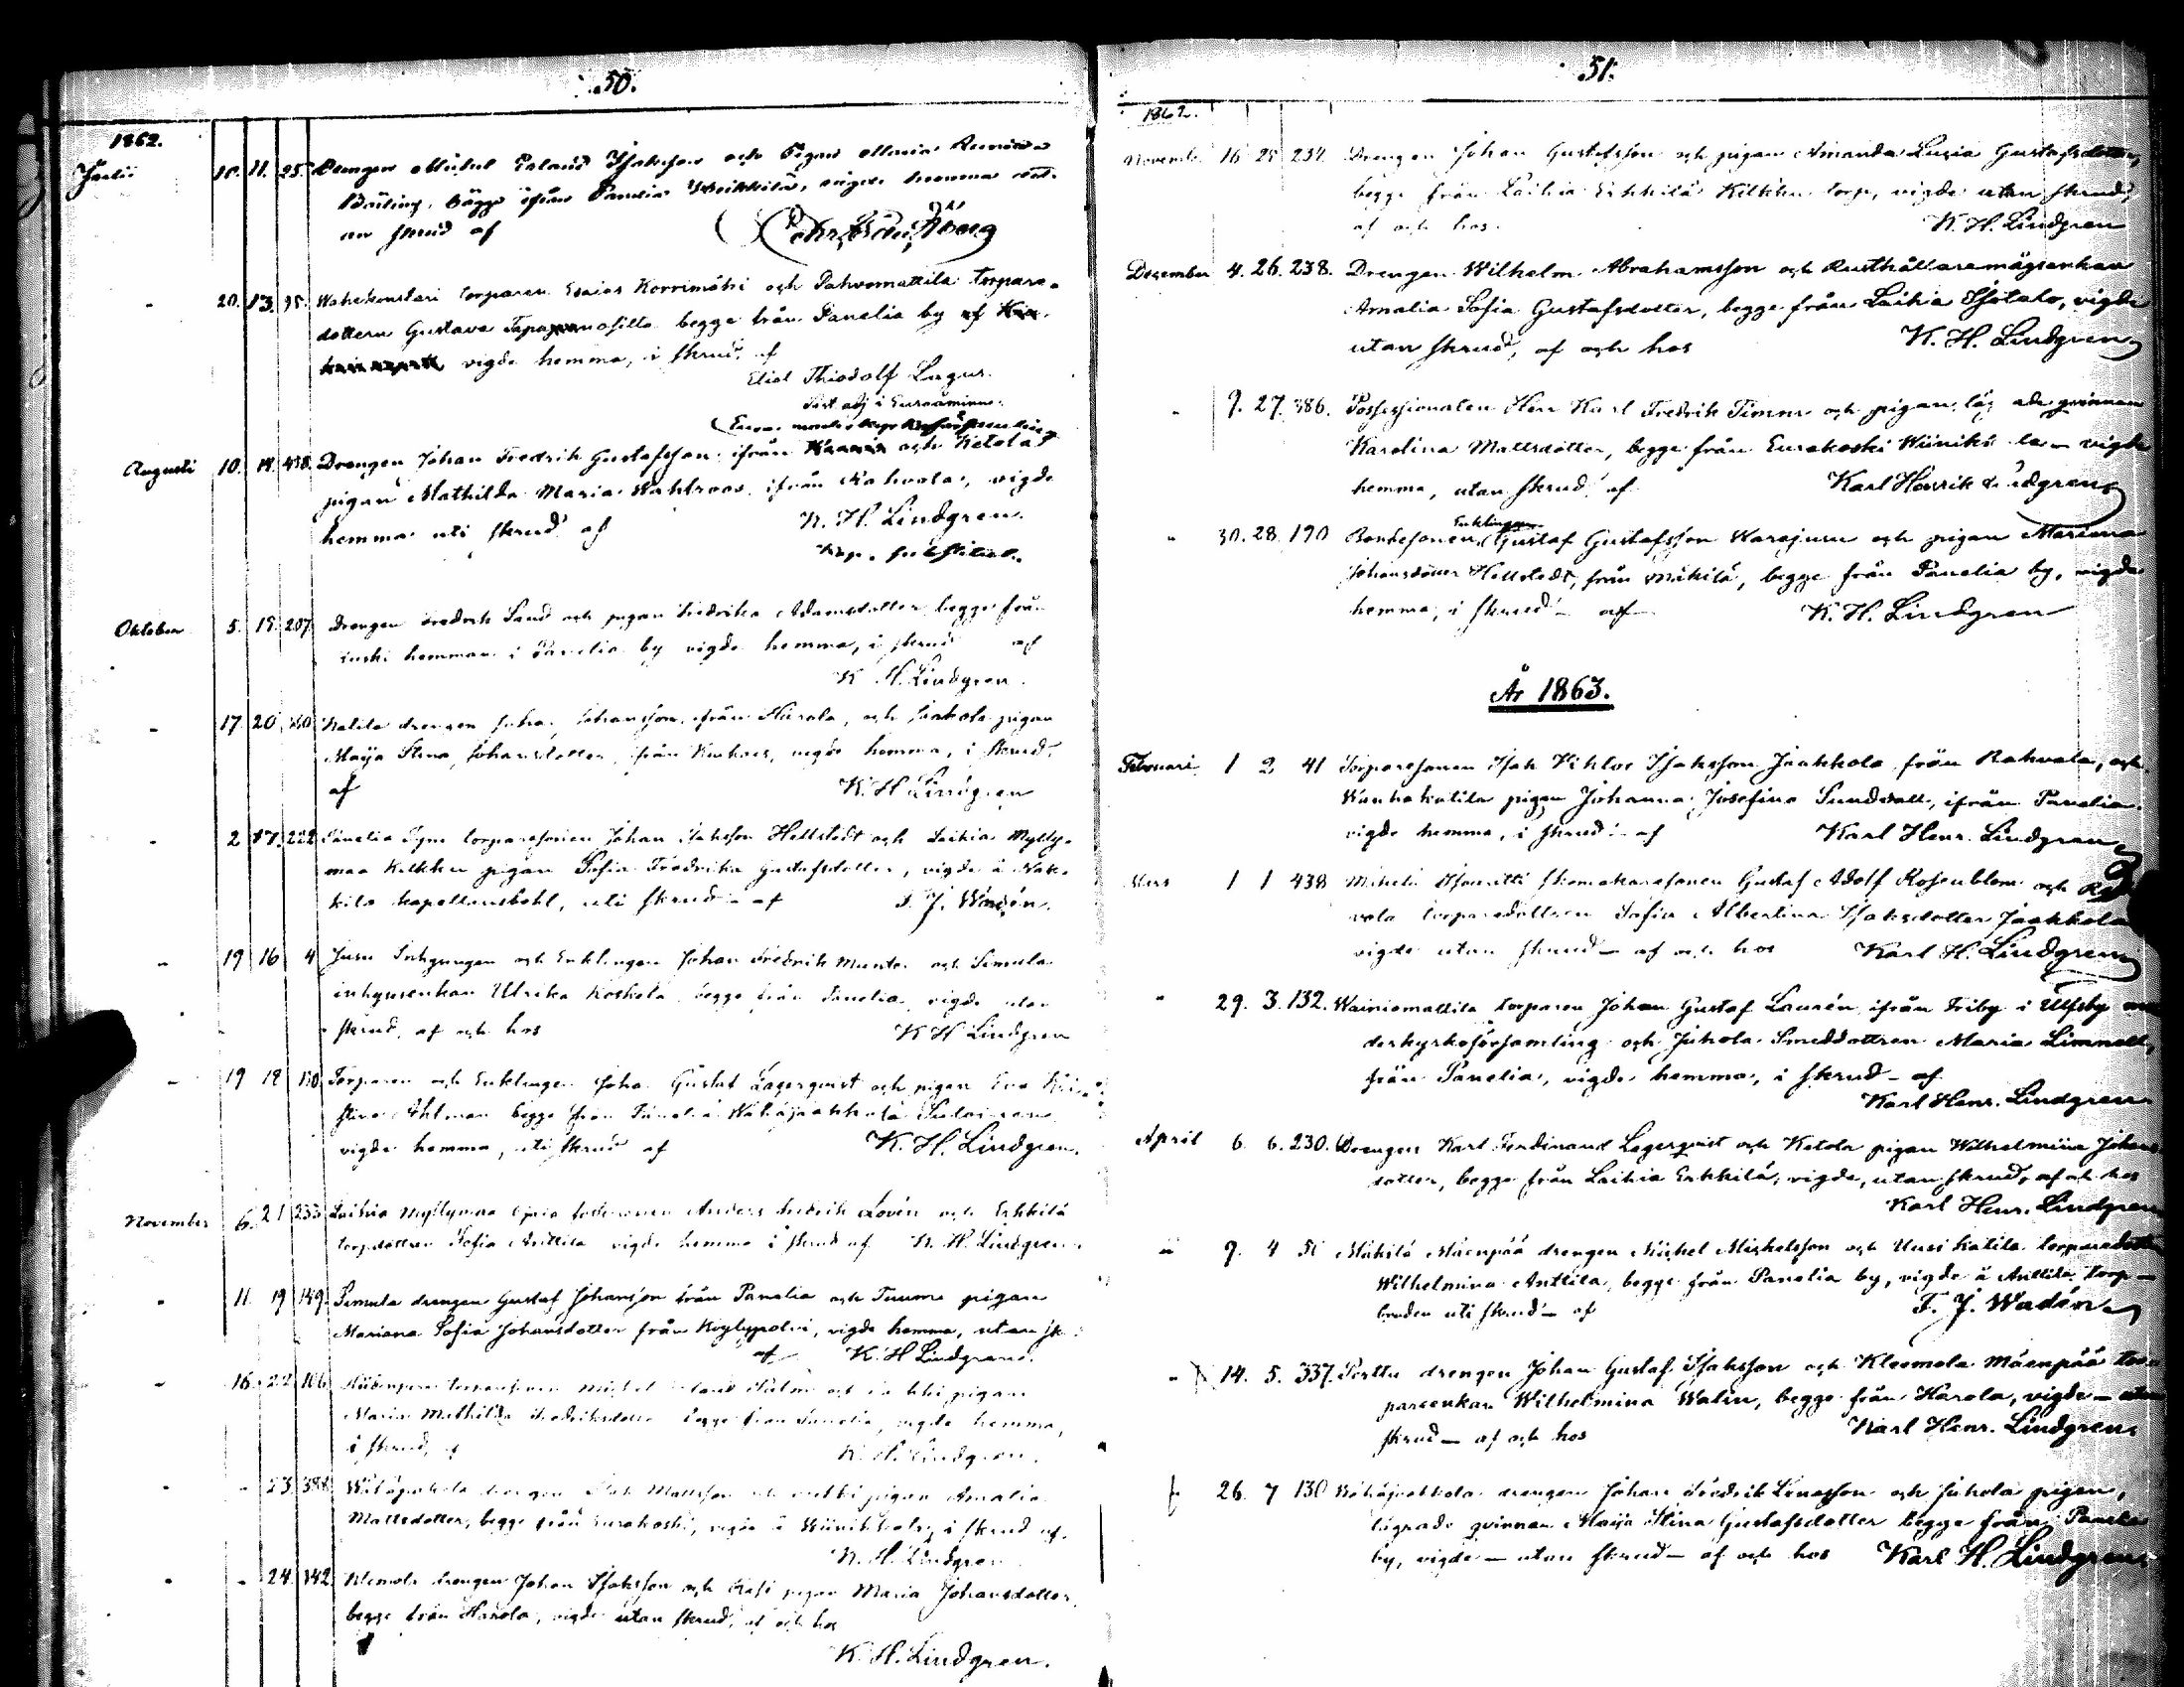 50.
1862.
Julii 10. 11. 25. Drengen Michel Erland Isaksson och Pigan Maria
bägge ifrån Panelia Heikkilä, vigde hemma
skrud af
20. 13. 95. Torparen Esaias Korrimäki och Pahvomattila torpare
dottern Gustava begge från Panelia by af
vigde hemma, i skrud, af
Eliel Thiodolf Lagus.
adj i Euraåminne.
Augusti 10. 14. 458. Drengen Johan Fredrik Gustafsson ifrån och Ketola
pigan Mathilda Maria Wahlroos ifrån Rahvola, vigde
hemma uti skrud af K. H. Lindgren.
Kap. substitut.
Oktober 5. 15. 207. Drengen Fredrik Sand och pigan Fredrika Adamsdotter begge från
hemman i Panelia by vigde hemma, i skrud af
K. H. Lindgren.
17. 20 drengen Johan Johansson ifrån Harola, och pigan
Maija Stina Johansdotter, ifrån vigde hemma, i skrud
af K. H. Lindgren
2 17. 222 Panelia torparesonen Johan Isaksson Hellstedt och Laihia Mylly-
maa Kilkku pigan Sofia Fredrika Gustafsdotter, vigde å Nak-
kila kapellansbohl, uti skrud - af F. J. Wadén.
19 16 4 Jusu Inhysingen och Enklingen Johan Fredrik Munter och Simula
inhysenkan Ulrika Koskela begge från Panelia, vigde utan
skrud, af och hos K H Lindgren
19 18 130 Torparen och Enklingen Joha Gustaf Lagerqvist och pigan Eva Kri-
stina Ahlman begge från Panelia Wähäjaakkola
vigde hemma, uti skrud af K. H. Lindgren.
November 6. 21 233 Laihia Myllymaa Anders Fredrik Lovén och Erkkilä
torpdottren Sofia Anttila vigde hemma i skrud af K. H. Lindgren.
11. 19 149. Simula drengen Gustaf Johansson från Panelia och Tuuma pigan
Mariana Sofia Johansdotter från Köylypolvi, vigde hemma, utan sk
af K. H Lindgren.
16. 22 106 Michel och pigan
Maria Mathilda Fredriksdotter begge från Panelia, vigde hemma,
i skrud, af K. H. Lindgren.
23. 388 drengen Isak Mattsson och pigan Amalia
Mattsdotter, begge från Eurakoski, vigde å i skrud af.
K. H. Lindgren
24. 342 Klemola drengen Johan Isaksson och pigan Maria Johansdotter,
begge från Harola, vigde utan skrud, af och hos
K. H. Lindgren.
51.
1862.
November 16 25 234. Drengen Johan Gustafsson och pigan Amanda Lusia Gustafsdotter,
begge från Laihia Erkkilä Kilkku torp, vigde utan skrud,
af och hos. K. H. Lindgren
Dezember 4. 26. 238. Drengen Wilhelm Abrahamsson och Rusthållaremågsenkan
Amalia Sofia Gustafsdotter, begge från Laihia Isotalo, vigde
utan skrud, af och hos K. H. Lindgren
9. 27. 386. Possessionaten Herr Karl Fredrik Timme och pigan, läg ade qvinnan
Karolina Mattsdotter, begge från Eurakoski Wiinikk la - vigde
hemma, utan skrud af Karl Henrik Lindgren
30. 28. 190 Bondesonen, Enklingen Gustaf Gustafsson Warajusu och pigan Mariana
Johansdotter Hellstedt, från Mäkilä, begge från Panelia by, vigde
hemma, i skrud - af - K. H. Lindgren
År 1863.
Februari 1 2 41 Torparesonen Isak Viktor Isaksson Jaakkola från Rahvola, och
Wanhakatila pigan Johanna Josefina Sundwall, ifrån Panelia.
vigde hemma, i skrud - af Karl Henr. Lindgren
Mars 1 1 438 Mikola Isonitti skomakaresonen Gustaf Adolf Rosenblom och Ra
vola torparedottren Sofia Albertina Isaksdotter Jaakkola
vigde utan skrud - af och hos Karl H. Lindgren
29. 3. 132. Wainiomattila torparen Johan Gustaf Laurén ifrån Friby i Ulfsby mo
derkyrkoförsamling och Juhola Smeddottren Maria Limnell,
från Panelia, vigde hemma, i skrud - af
Karl Henr. Lindgren
April 6 6. 230. Drengen Karl Ferdinand Lagerqvist och Ketola pigan Wilhelmina Johans
dotter, begge från Laihia Erkkilä, vigde, utan skrud, af och hos
Karl Henr. Lindgren
9. 4 51 Mäkilä Mäenpää drengen Michel Michelsson och Uusi Katila torparedottren
Wilhelmina Anttila, begge från Panelia by, vigde å Anttila torp-
uti skrud - af F. J. Wadén
14. 5. 337. Perttu drengen Johan Gustaf Isaksson och Kleemola Mäenpää tor
pareenkan Wilhelmina Walin, begge från Harola, vigde - utan
skrud - af och hos Karl Henr. Lindgren
26. 7 130 Wähäjaakkola drengen Johan Fredrik Linusson och Juhola pigan,
lägrade qvinnan Maija Stina Gustafsdotter begge från Panelia
by, vigde - utan skrud - af och hos Karl H. Lindgren